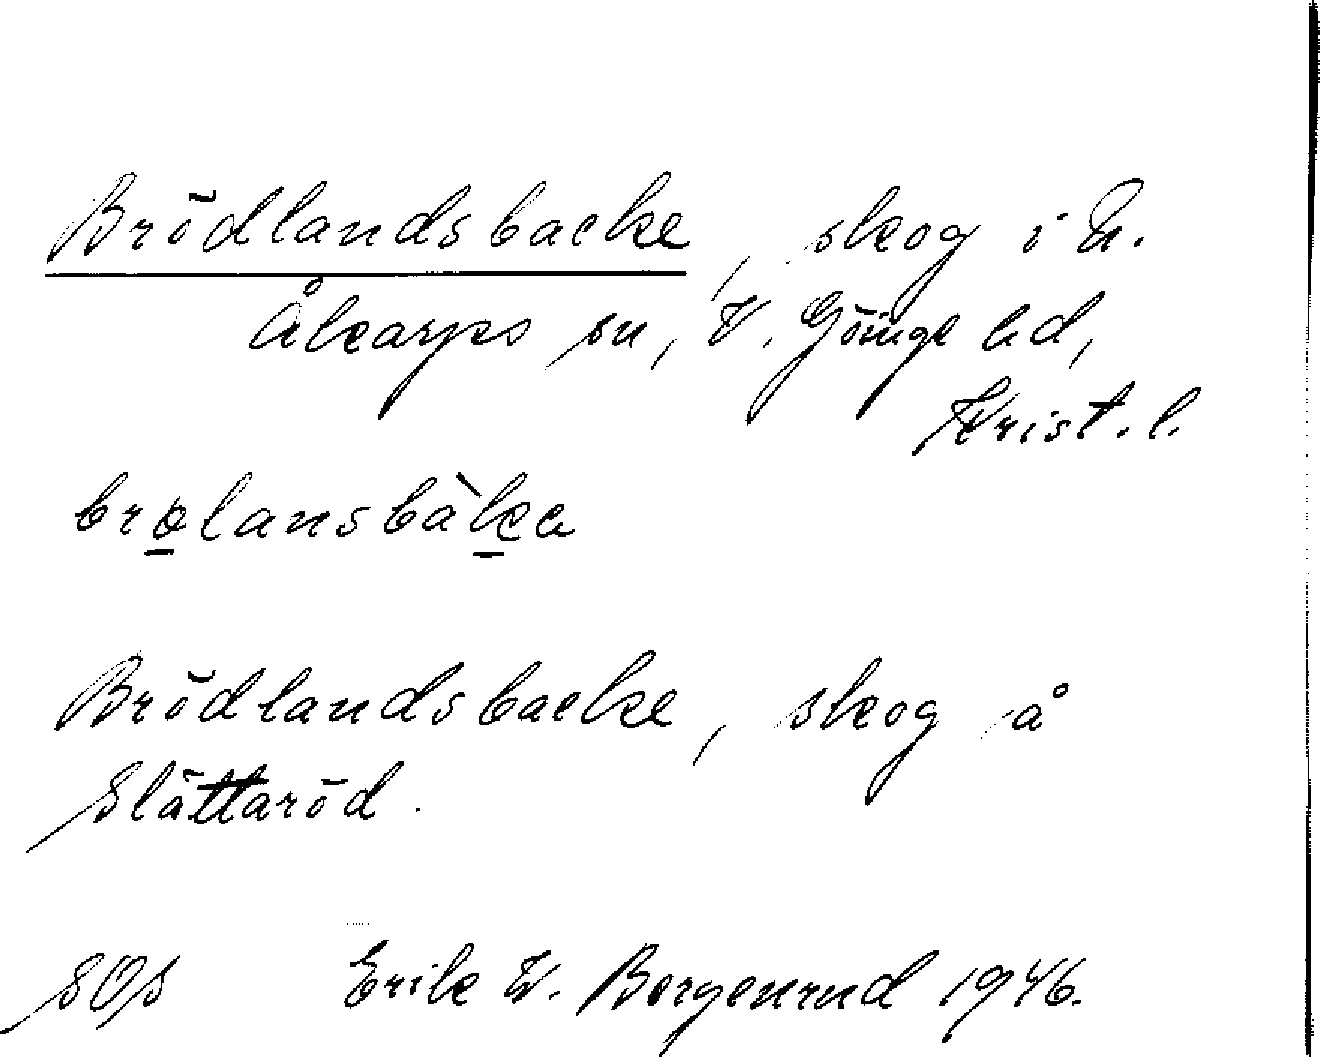 Brödlandsbacke, skog i N.
Åkarps sn, V. Göinge hd,
Krist. l.
brølansbàka
Brödlandsbacke, skog å
Slättaröd.
SOS Erik W. Borgenrud 1946.